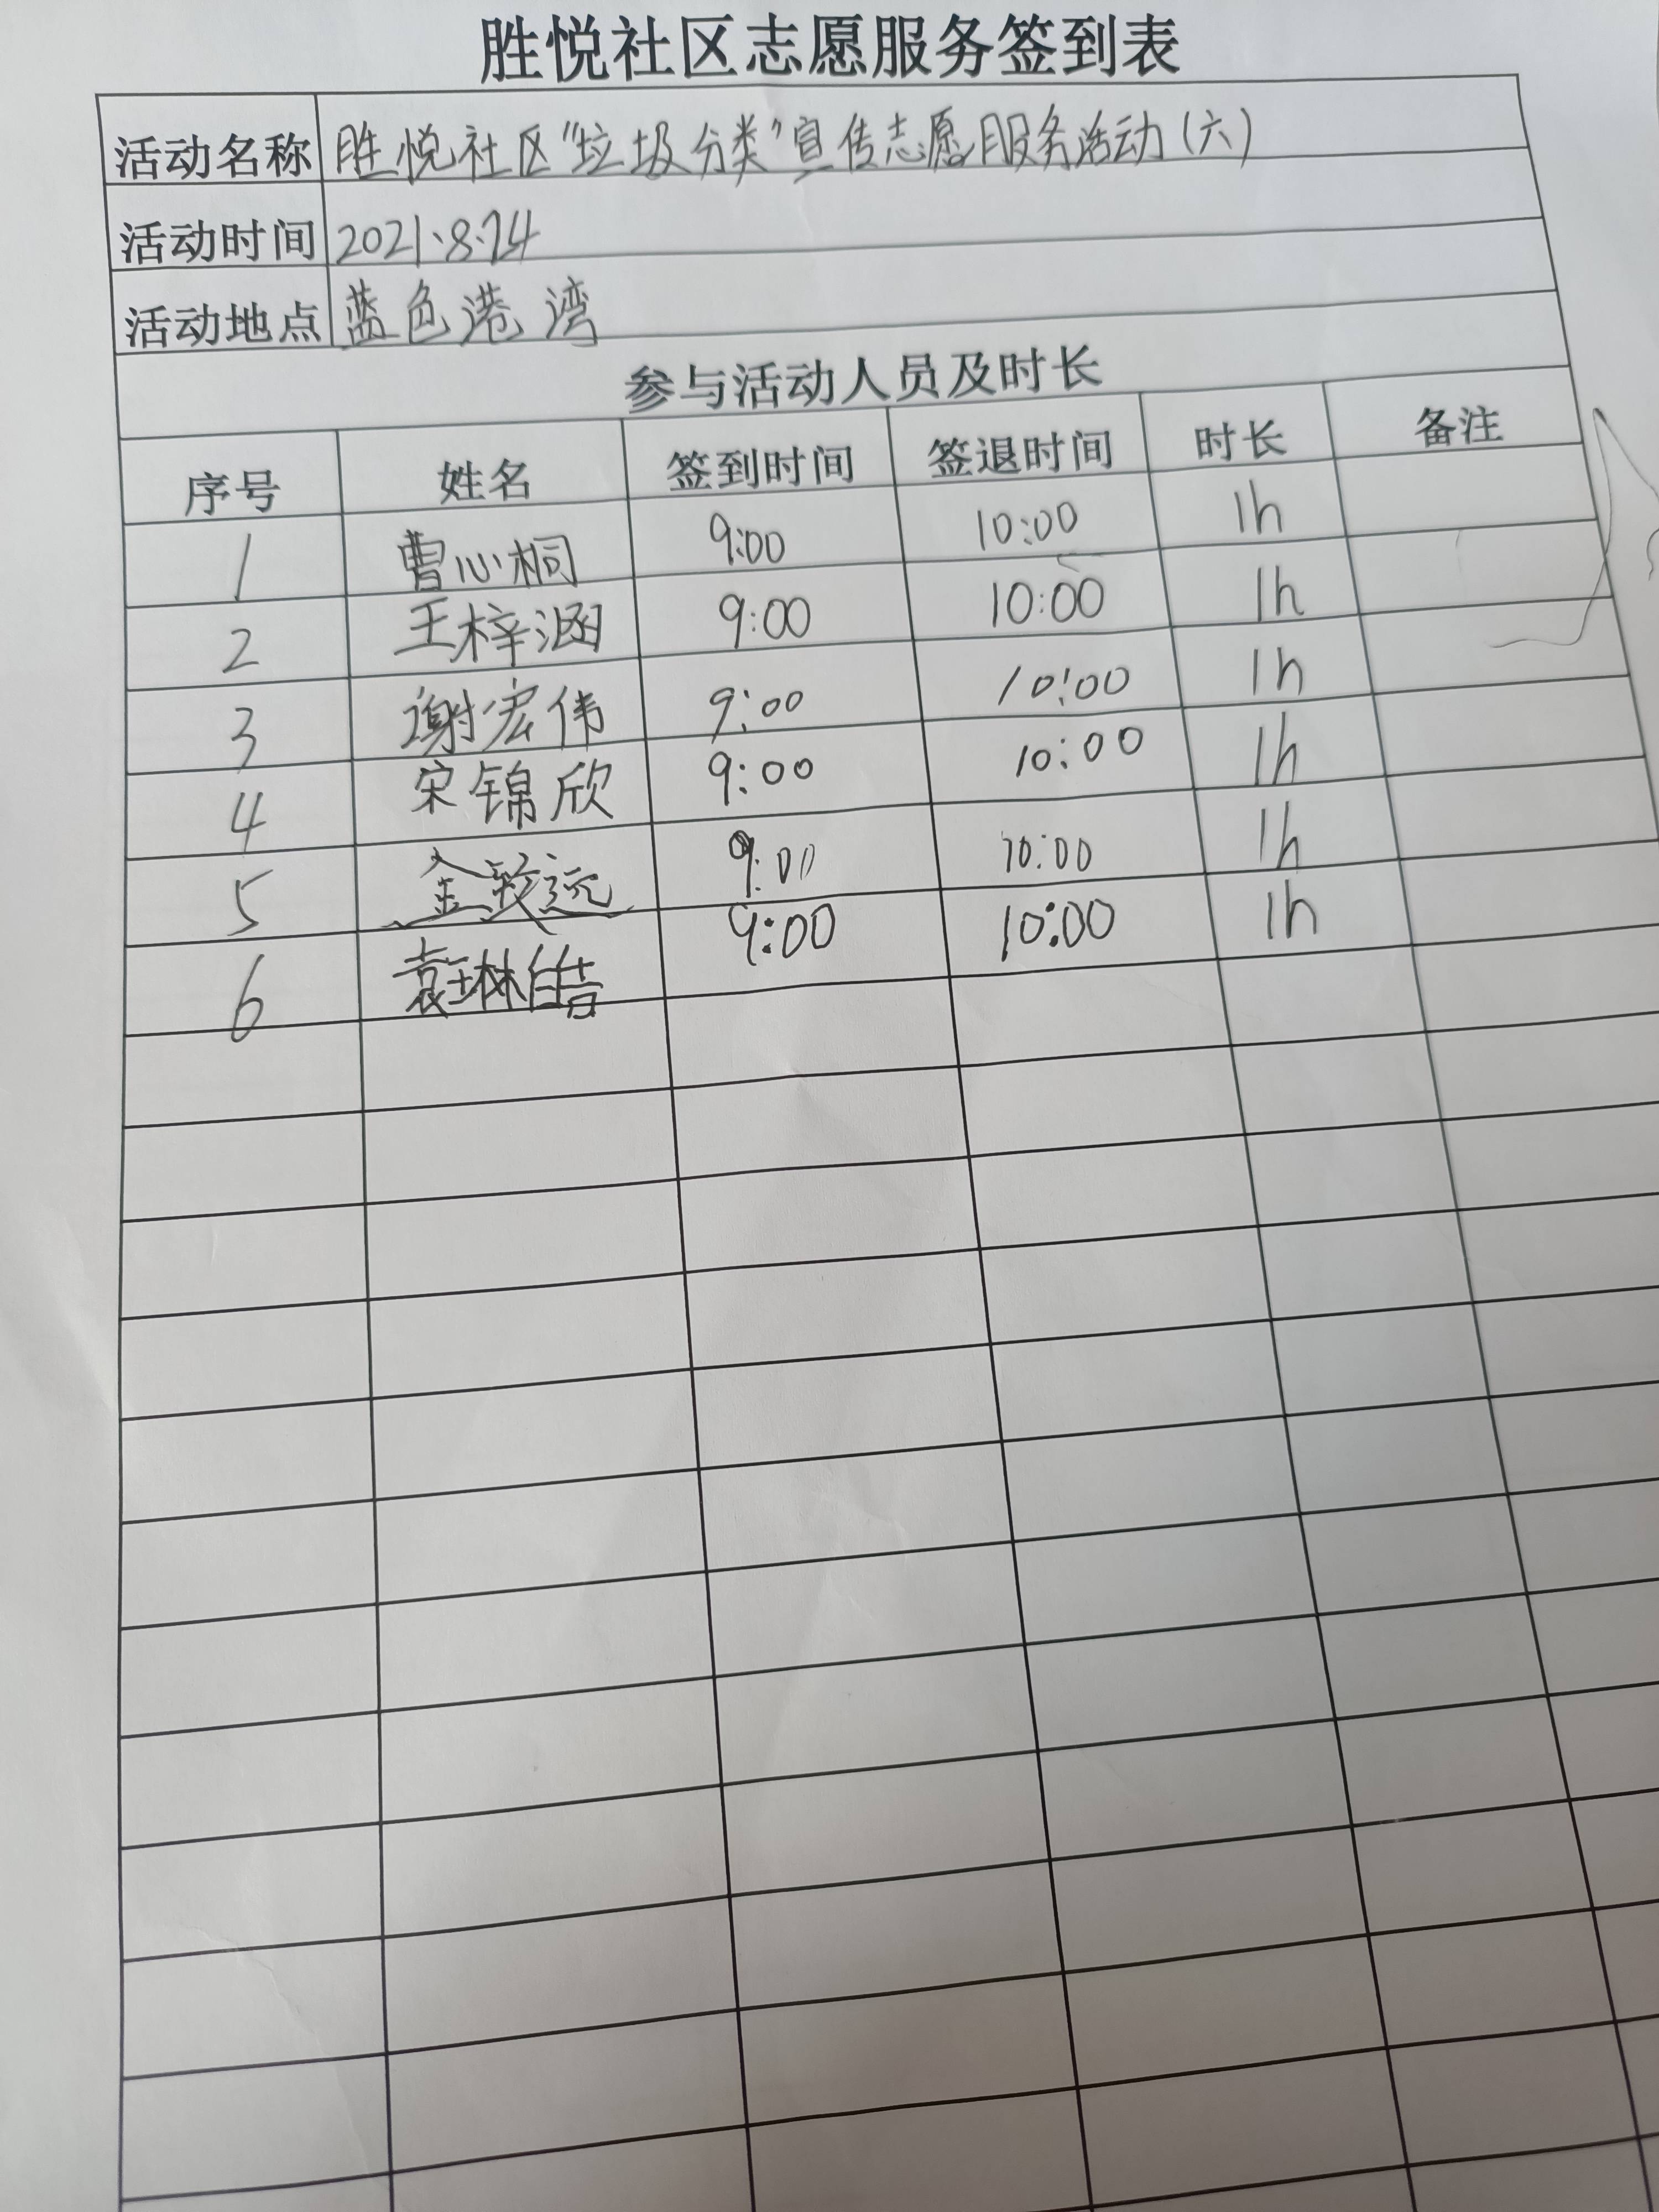 胜悦社区志愿服务签到表
活动名称 胜悦社区“垃圾分类”宣传志愿服务活动（六）
活动时间 2021.8.14
活动地点 蓝色港湾
参与活动人员及时长
序号 姓名 签到时间 签退时间 时长 备注
1 曹心桐 9:00 10:00 1h
2 王梓涵 9:00 10:00 1h
3 谢宏伟 9:00 10:00 1h
4 宋锦欣 9:00 10:00 1h
5 金致远 9:00 10:00 1h
6 袁琳皓 9:00 10:00 1h